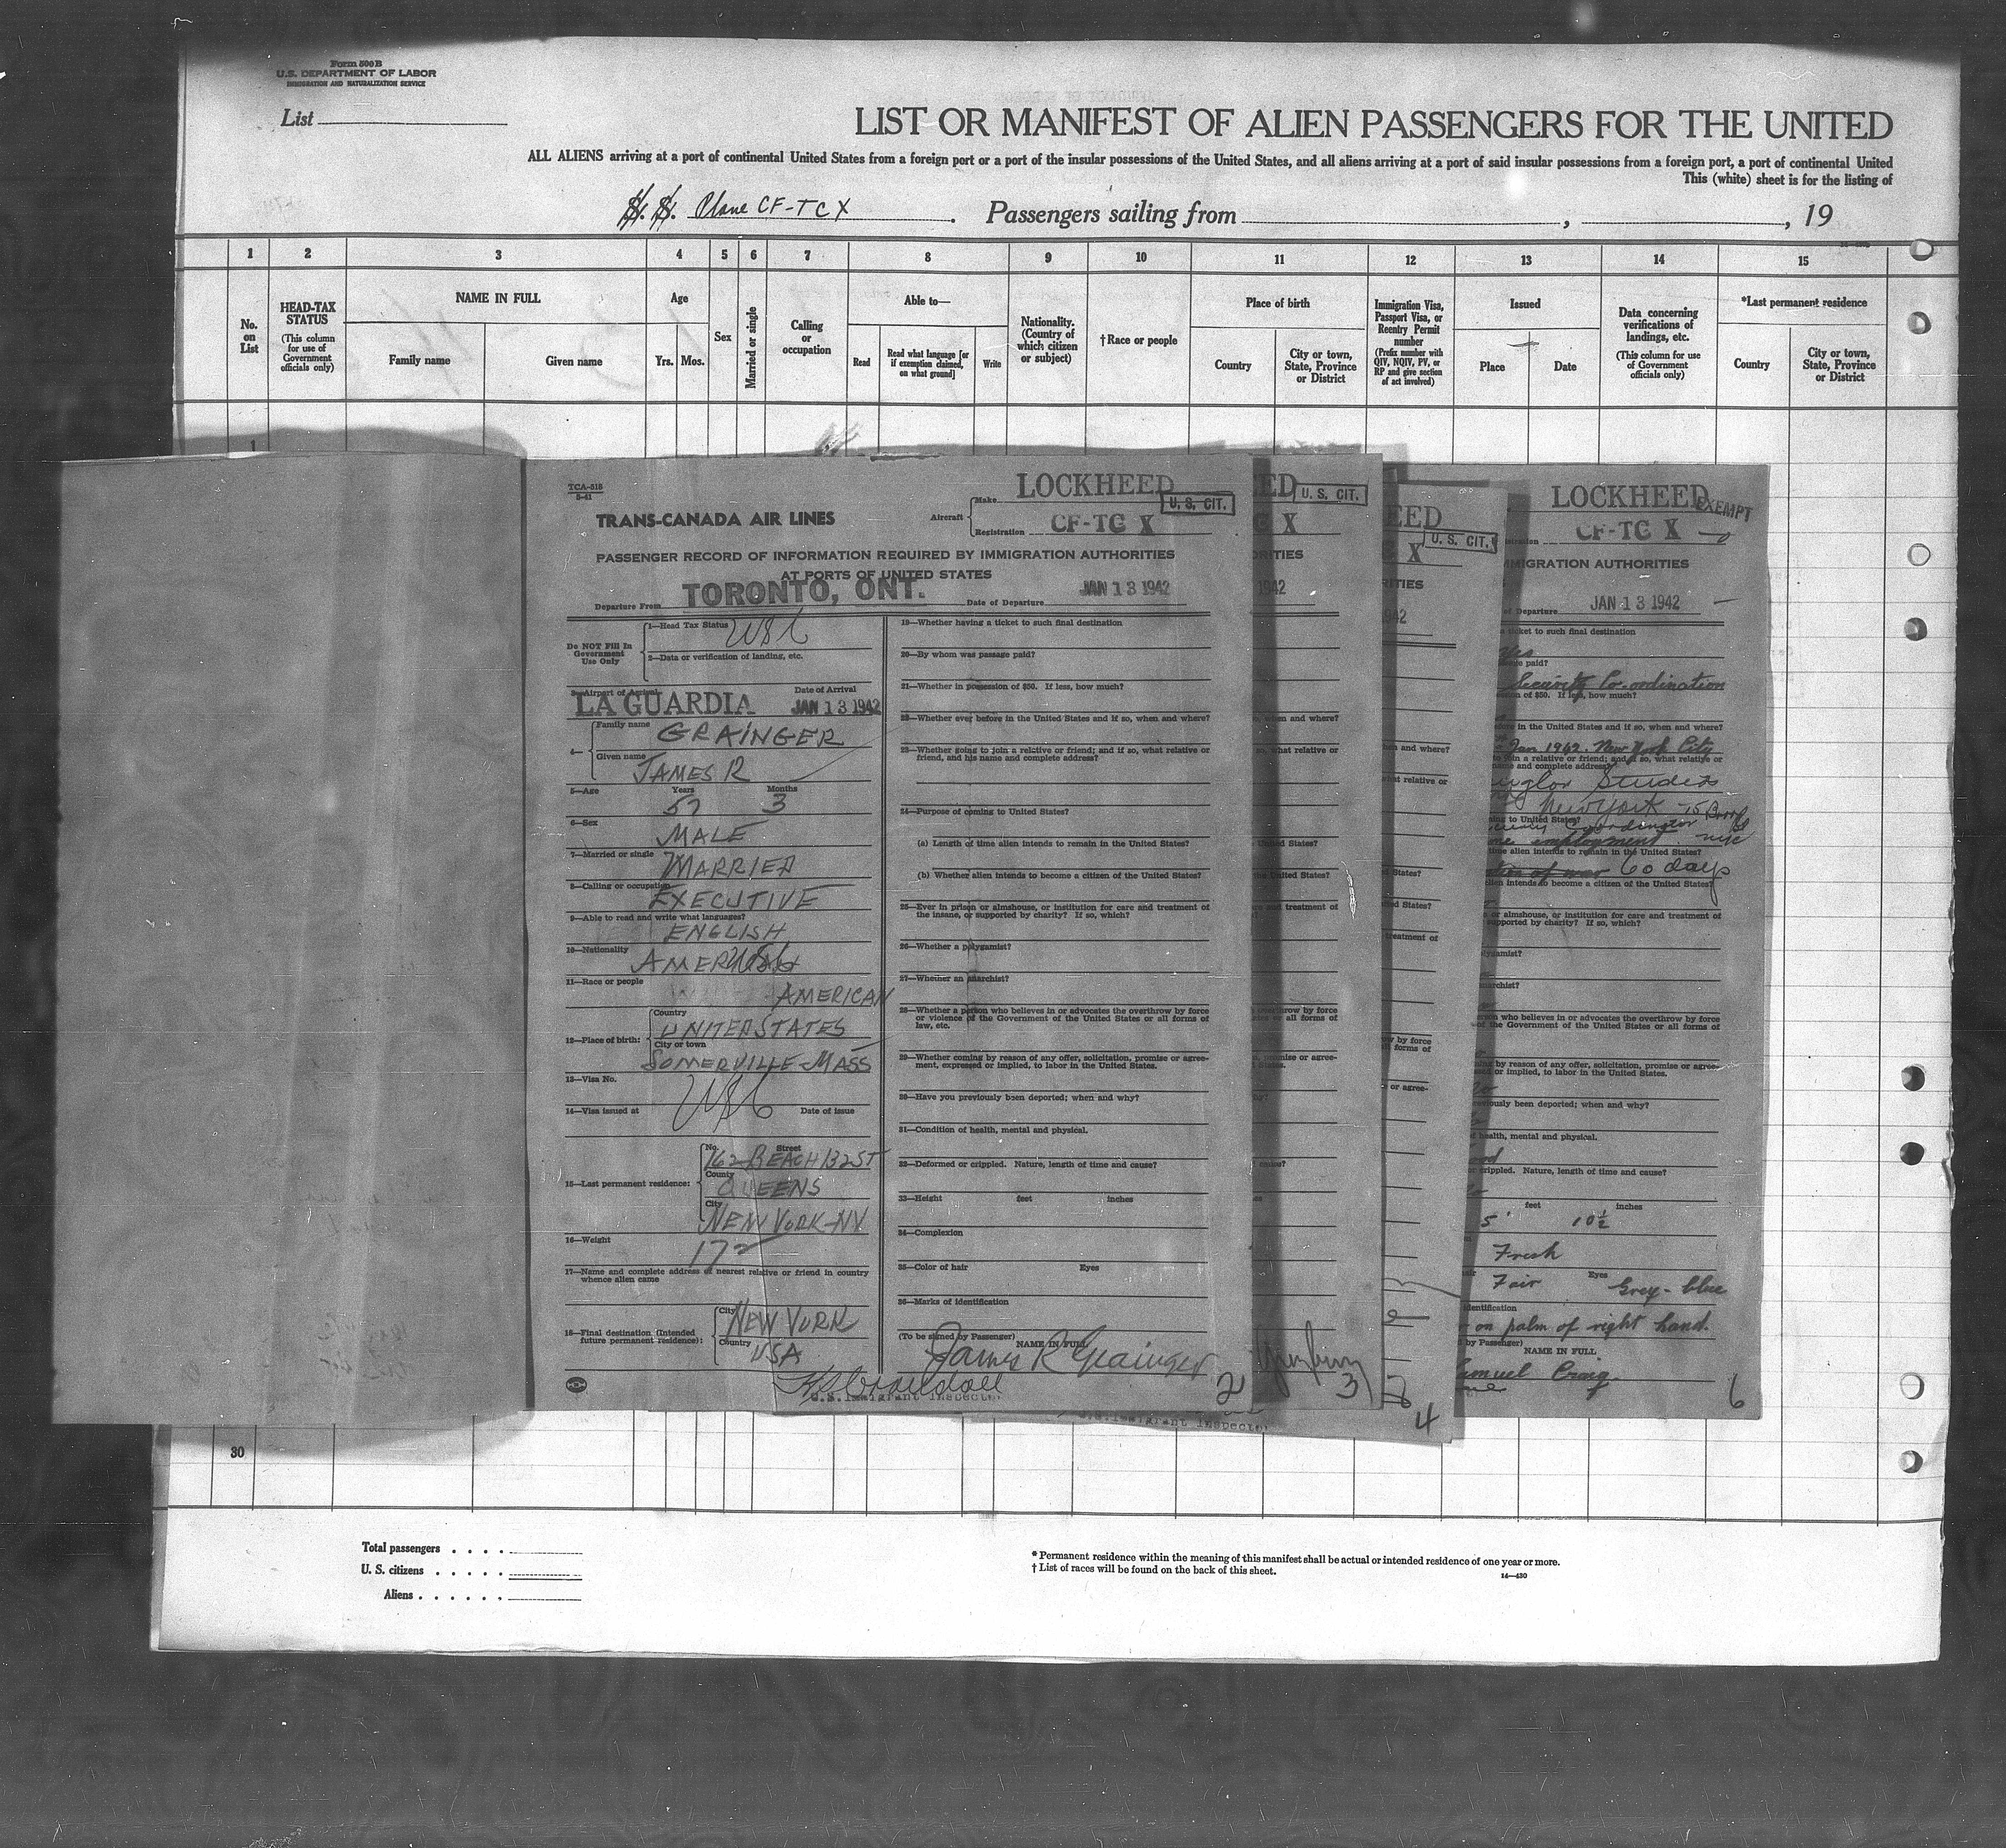 Form 500B
U.S. DEPARTMENT OF LABOR
IMMIGRATION AND NATURALIZATION SERVICE
List
LIST OR MANIFEST OF ALIEN PASSENGERS FOR THE UNITED
ALL ALIENS arriving at a port of continental United States from a foreign port or a port of the insular possessions of the United States, and all aliens arriving at a port of said insular possessions from a foreign port, a port of continental United
This (white) sheet is for the listing of
S. S. Plane CF-TCX. Passengers sailing from , , 19
1 2 3 4 5 6 7 8 9 10 11 12 13 14 15
No. on List
HEAD-TAX STATUS
(This column for use of Government officials only)
NAME IN FULL
Family name Given name
Age
Yrs. Mos.
Sex
Married or single
Calling or occupation
Able to—
Read
Read what language [or if exemption claimed, on what ground]
Write
Nationality. (Country of which citizen or subject)
†Race or people
Place of birth
Country
City or town, State, Province or District
Immigration Visa, Passport Visa, or Reentry Permit number
(Prefix number with QIV, NQIV, PV, or RP and give section of act involved)
Issued
Place Date
Data concerning verifications of landings, etc.
(This column for use of Government officials only)
*Last permanent residence
Country
City or town, State, Province or District
1
TCA-515
5-41
TRANS-CANADA AIR LINES
Aircraft
Make LOCKHEED
U. S. CIT.
Registration CF-TC X
PASSENGER RECORD OF INFORMATION REQUIRED BY IMMIGRATION AUTHORITIES
AT PORTS OF UNITED STATES
Departure From TORONTO, ONT. Date of Departure JAN 13 1942
Do NOT Fill In
Government
Use Only
1—Head Tax Status USC
2—Data or verification of landing, etc.
3—Airport of Arrival Date of Arrival
LA GUARDIA JAN 13 1942
4— Family name GRAINGER
Given name JAMES R
5—Age Years 57 Months 3
6—Sex MALE
7—Married or single MARRIED
8—Calling or occupation EXECUTIVE
9—Able to read and write what languages?
ENGLISH
10—Nationality
11—Race or people AMERICAN
12—Place of birth: Country UNITED STATES
City or town SOMERVILLE-MASS
13—Visa No. USC
14—Visa issued at Date of issue
15—Last permanent residence:
No. Street 162 BEACH 132 ST
County QUEENS
City NEW YORK-NY
16—Weight 172
17—Name and complete address of nearest relative or friend in country
whence alien came
18—Final destination (Intended
future permanent residence):
City NEW YORK
Country USA
U.S. Immigrant Inspector
19—Whether having a ticket to such final destination
20—By whom was passage paid?
21—Whether in possession of $50. If less, how much?
22—Whether ever before in the United States and if so, when and where?
23—Whether going to join a relative or friend; and if so, what relative or
friend, and his name and complete address?
24—Purpose of coming to United States?
(a) Length of time alien intends to remain in the United States?
(b) Whether alien intends to become a citizen of the United States?
25—Ever in prison or almshouse, or institution for care and treatment of
the insane, or supported by charity? If so, which?
26—Whether a polygamist?
27—Whether an anarchist?
28—Whether a person who believes in or advocates the overthrow by force
or violence of the Government of the United States or all forms of
law, etc.
29—Whether coming by reason of any offer, solicitation, promise or agree-
ment, expressed or implied, to labor in the United States.
30—Have you previously been deported; when and why?
31—Condition of health, mental and physical.
32—Deformed or crippled. Nature, length of time and cause?
33—Height feet inches
34—Complexion
35—Color of hair Eyes
36—Marks of identification
(To be signed by Passenger)
NAME IN FULL
James R Grainger
2
U. S. CIT.
3
U. S. CIT.
4
U.S. Immigrant Inspector
LOCKHEED
EXEMPT
CF-TC X
IMMIGRATION AUTHORITIES
of Departure JAN 13 1942
a ticket to such final destination
Yes
Security Co-ordination
of $50. If less, how much?
before in the United States and if so, when and where?
Jan 1942. New York City
to join a relative or friend; and if so, what relative or
name and complete address?
New York
60 days
alien intends to become a citizen of the United States?
or almshouse, or institution for care and treatment of
supported by charity? If so, which?
person who believes in or advocates the overthrow by force
of the Government of the United States or all forms of
by reason of any offer, solicitation, promise or agree-
or implied, to labor in the United States.
previously been deported; when and why?
health, mental and physical.
or crippled. Nature, length of time and cause?
5' feet 10½ inches
Fresh
Fair Eyes Grey-blue
identification
on palm of right hand.
by Passenger)
NAME IN FULL
Samuel Craig.
6
30
Total passengers
U. S. citizens
Aliens
* Permanent residence within the meaning of this manifest shall be actual or intended residence of one year or more.
† List of races will be found on the back of this sheet.
14—430